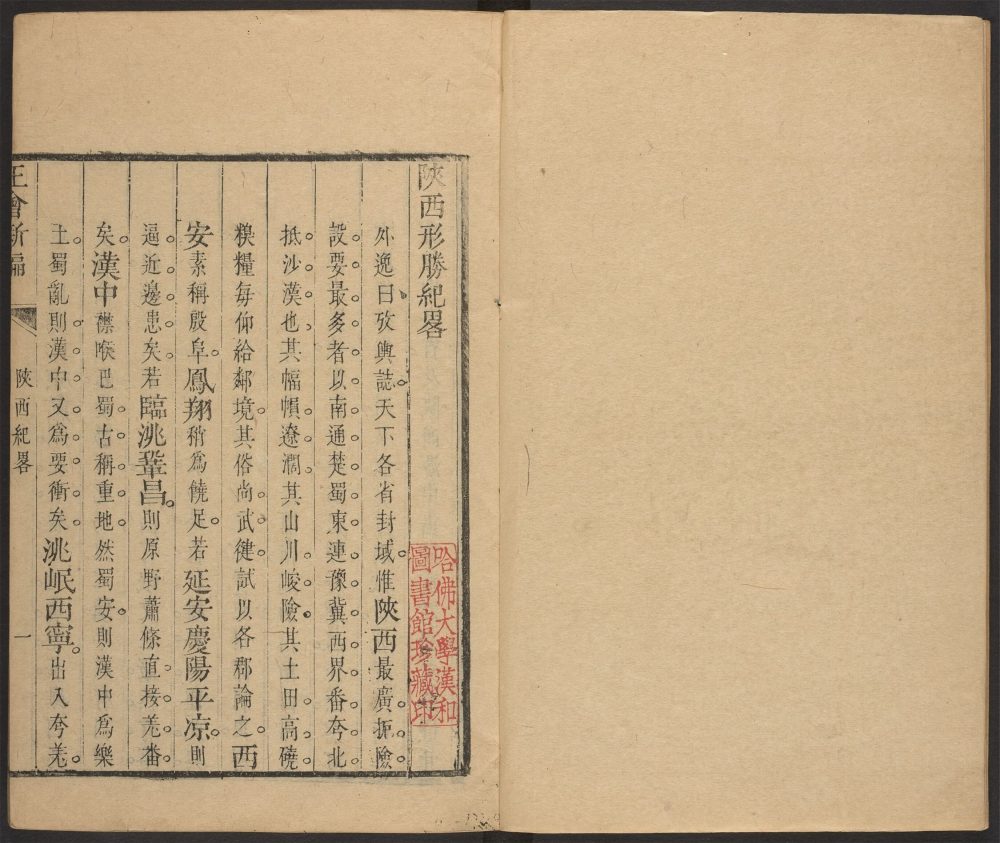 陝西形勝紀畧
外逸曰攷輿誌天下各省封域惟陝西最廣扼險
設要最多者以南通楚蜀東連豫冀西界番夸北
抵沙漠也其幅幀遼濶其山川峻險其土田高磽
糗糧每仰給鄰境其俗尚武健試以各郡論之西
安素稱殷阜鳳翔稍爲饒足若延安慶陽平凉則
逼近邊患矣若臨洮鞏昌則原野蕭條直接羌番
矣漢中襟喉巴蜀古稱重地然蜀安則漢中爲樂
土蜀亂則漢中又爲要衝矣洮岷西寧出入夸羌
王會新編
陝西紀畧
一
哈佛大學漢和
圖書館珍藏印